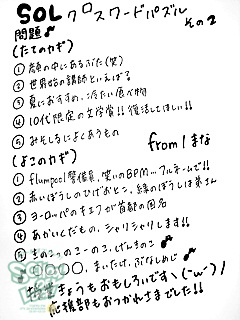 SOLクロスワードパズル
その2
問題♪
(たてのカギ)
① 顔の中にあるぶた(笑)
② 世界始の講師といえば!
③ 夏におすすめ、冷たい食べ物
④ 10代限定の文学賞!!復活してほしい!!
⑤ みそしるによくあうもの
from 1 まな
(よこのカギ)
① flumpool警備員、笑いのBPM…フルネームで!!
② 赤いぼうしのひげおとこ、緑のぼうしは弟さん
③ ヨーロッパのキエフが首都の国名
④ あかいくだもの、シャリシャリします!!
⑤ きのこっのこーのこ、げんきのこ♪
○○○○、まいたけ、ぶなしめじ♪
きょうもおもしろいです\(~w~)/
応援部もおつかれさまでした!!